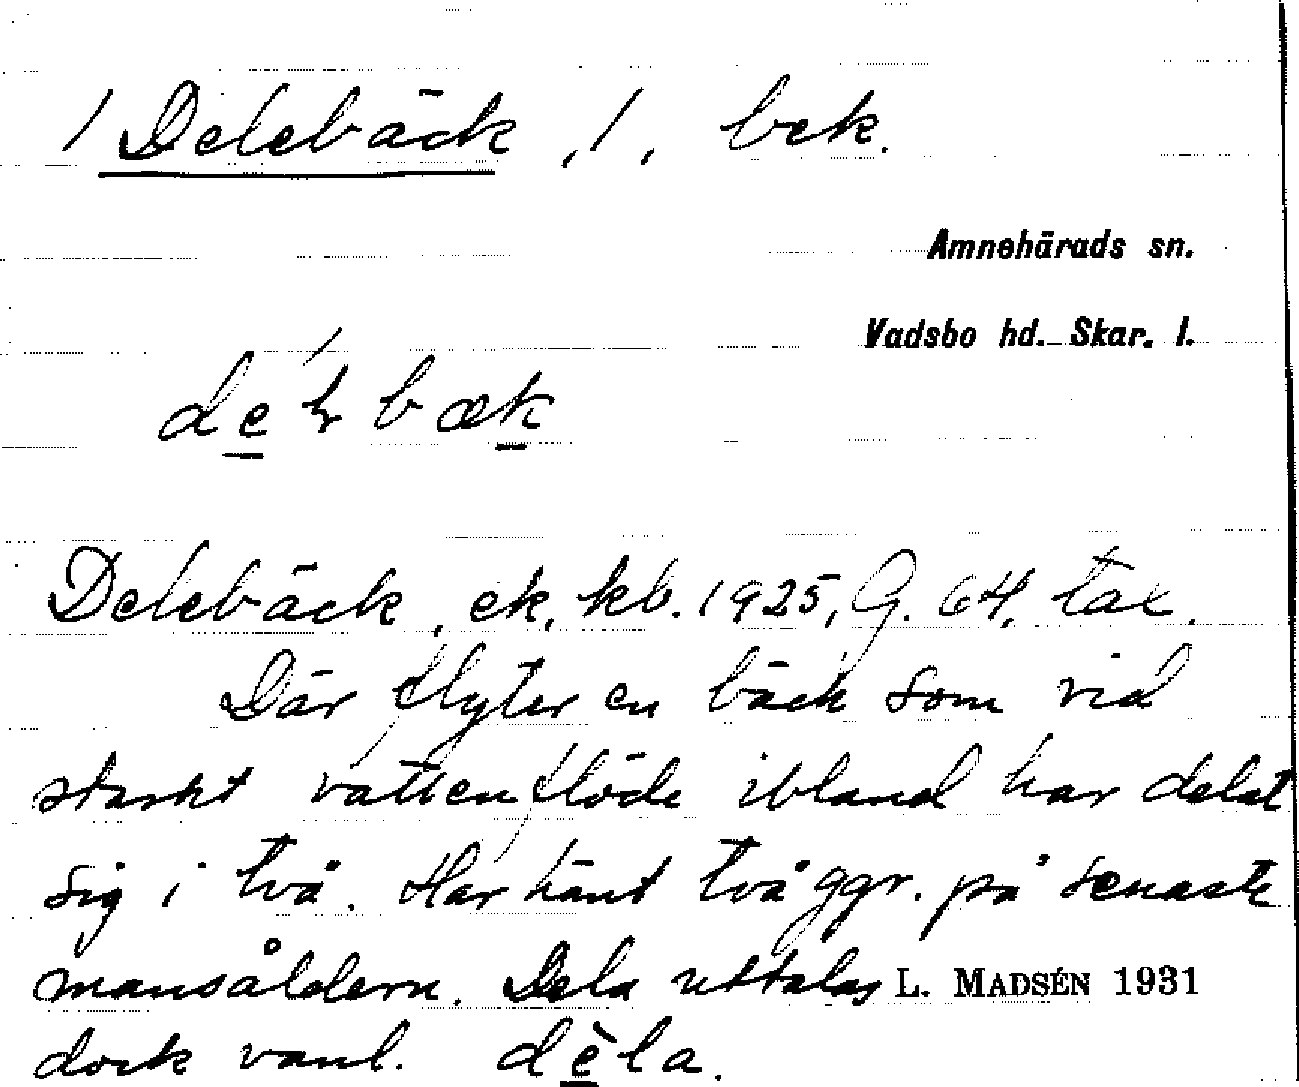 1 Delebäck, 1, bek.
Amnehärads sn.
Vadsbo hd. Skar. l.
Delebäck, ek, kb. 1925, G. 64, tax.
Där flyter en bäck som vid
starkt vattenflöde ibland har delat
sig i två. Har hänt två ggr. på senaste
mansåldern. Dela uttalas L. MADSÉN 1931
dock vanl. dèla.